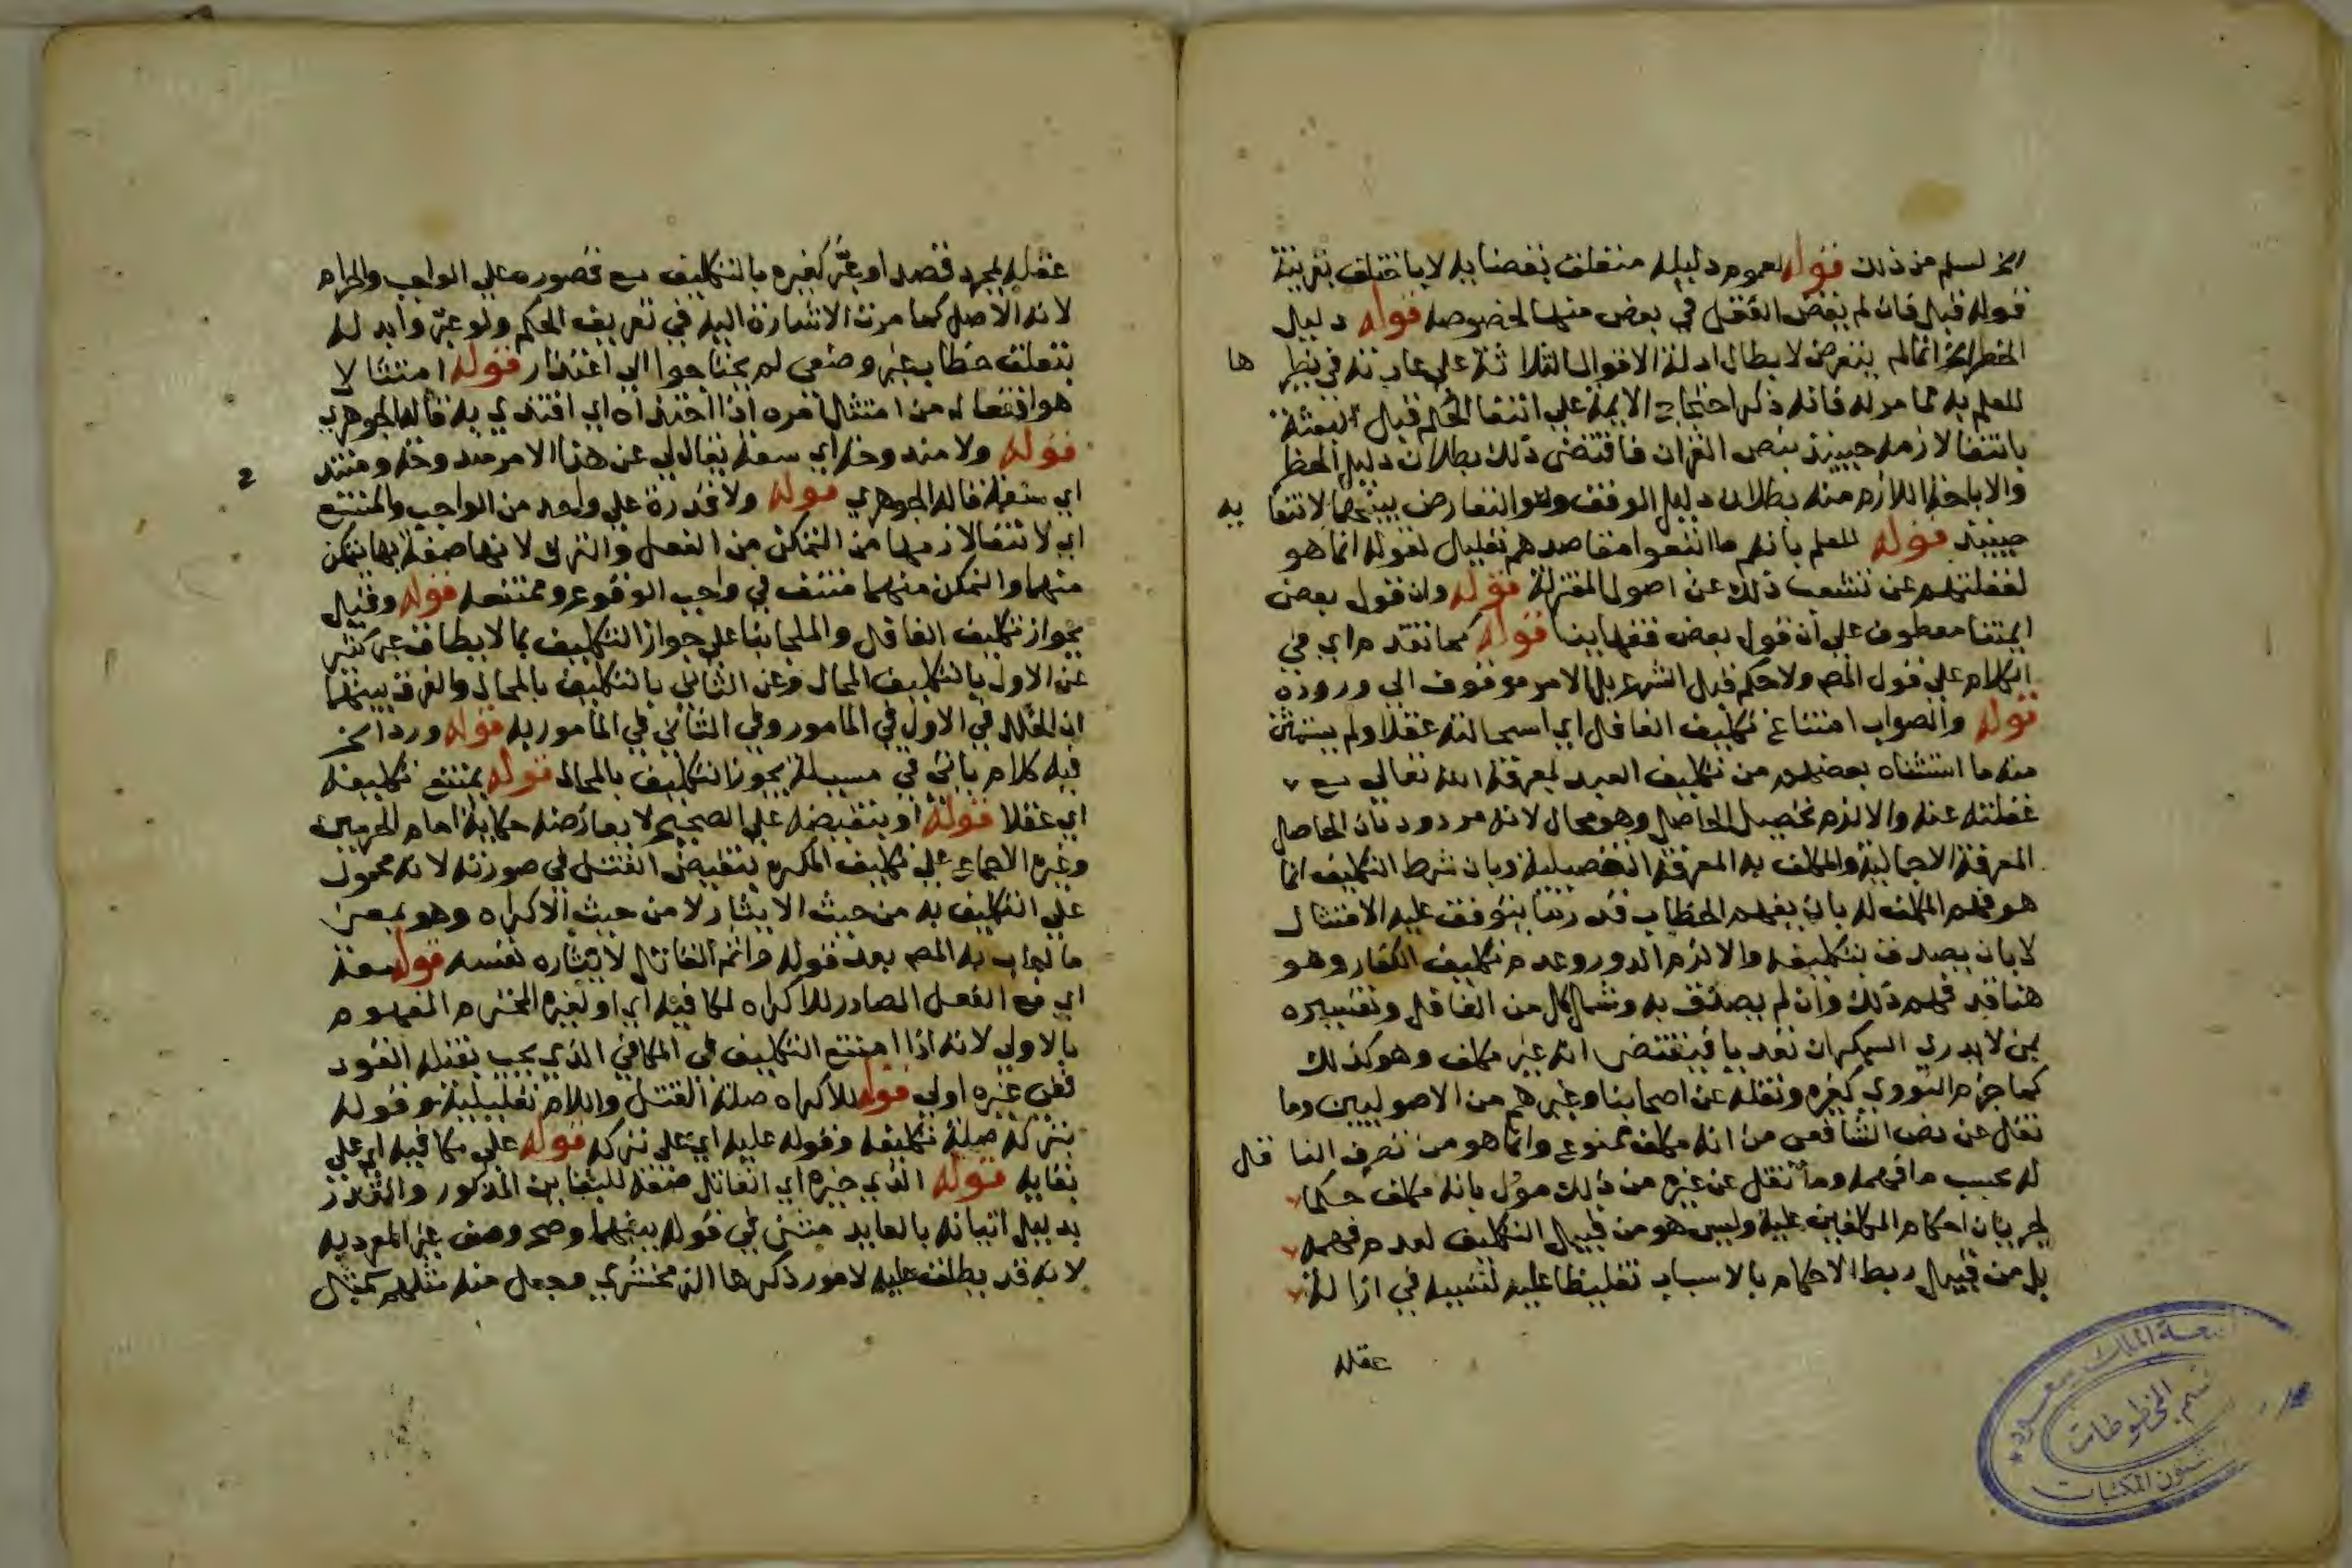 الخ لسلم من ذلك قوله لعموم دليله متعلق بقضايه لا باختلف بقرينة
قوله قبل فان لم يقض العقل في بعض منها لخصوصه قوله دليل
الحظر الخ انما لم يتعرض لابطال ادلة الاقوال الثلاثة علي عادته في نظيرها
للعلم به مما مر له فانه ذكر احتجاج الايمة علي انتفا الحكم قبل البعثة
بانتفا لازمه حينيذ بنص القران فاقتضي ذلك بطلان دليل الحظر
والاباحة اللازم منه بطلان دليل الوقف وهو التعارض بينهما لانتفايه
حينيذ قوله للعلم بانهم ما اتبعوا مقاصدهم تعليل لقوله انما هو
لغفلتهم عن تشعب ذلك عن اصول المعتزلة قوله وان قول بعض
ايمتنا معطوف علي ان قول بعض فقهاينا قوله كما تقدم اي في
الكلام علي قول المص ولا حكم قبل الشرع بل الامر موقوف الي وروده
قوله والصواب امتناع تكليف الغافل اي استحالته عقلا ولم يستثن
منه ما استثناه بعضهم من تكليف العبد لمعرفة الله تعالي مع
غفلته عنه والا لزم تحصيل الحاصل وهو محال لانه مردود بان الحاصل
المعرفة الاجمالية والمكلف به المعرفة التفصيلية وبان شرط التكليف انما
هو فهم المكلف له بان يفهم الخطاب قدر ما يتوقف عليه الامتثال
لا بان يصدق بتكليفه والا لزم الدور وعدم تكليف الكفار وهو
هنا قد فهم ذلك وان لم يصدق به وشمل كل من الغافل وتفسيره
بمن لا يدري السكران تعديا فيقتضي انه غير مكلف وهو كذلك
كما جزم به النووي كغيره ونقله عن اصحابنا وغيرهم من الاصوليين وما
نقل عن نص الشافعي من انه مكلف ممنوع وانما هو من تصرف الناقل
له بحسب ما فهمه وما نقل عن غيره من ذلك مؤل بانه مكلف حكما
لجريان احكام المكلفين عليه وليس هو من قبيل التكليف لعدم فهمه
بل من قبيل ربط الاحكام بالاسباب تغليظا عليه لتسببه في ازالة
عقله
عقله بمجرد قصد او عبّر كغيره بالتكليف مع قصوره علي الواجب والحرام
لانه الاصل كما مرت الاشارة اليه في تعريف الحكم ولو عبّر وابدله
بتعلق خطاب غير وضعي لم يحتاجوا الي اعتذار قوله امتثالا
هو افتعال من امتثل امره اذا احتذاه اي اقتدي به قاله الجوهري
قوله ولا مندوحة اي سعة يقال لي عن هذا الامر مندوحة ومنتدح
اي سعة قاله الجوهري قوله ولا قدرة علي واحد من الواجب والممتنع
اي لانتفا لازمها من التمكن من الفعل والترك لانها صفة بها يتمكن
منهما والتمكن منهما منتف في واجب الوقوع وممتنعه قوله وقيل
بجواز تكليف الغافل والملجا بنا علي جواز التكليف بما لا يطاق عبر كثير
عن الاول بالتكليف المحال وعن الثاني بالتكليف بالمحال والفرق بينهما
ان الخلل في الاول في المامور وفي الثاني في المامور به قوله ورد الخ
فيه كلام ياتي في مسيلة يجوز التكليف بالمحال قوله يمتنع تكليفه
اي عقلا قوله او بنقيضه علي الصحيح لا يعارضه حكاية امام الحرمين
وغيره الاجماع علي تكليف المكره بنقيض القتل في صورته لانه محمول
علي التكليف به من حيث الايثار لا من حيث الاكراه وهو بمعني
ما اجاب به المص بعد قوله واثم القاتل لايثاره نفسه قوله معه
اي مع الفعل الصادر للاكراه لمكافيه اي او لغيره المحترم المفهوم
بالاولي لانه اذا امتنع التكليف في المكافي الذي يجب بقتله القود
ففي غيره اولي قوله للاكراه صلة القتل واللام تعليلية وقوله
بتركه صلة تكليفه وقوله عليه اي علي تركه قوله علي مكافيه اي علي
بقايه قوله الذي خيره اي القاتل صفة للبقاين المذكور والمقدر
بدليل اتيانه بالعايد مثني في قوله بينهما وصح وصف غير المعود به
لانه قد يطلق عليه لامور ذكرها الزمخشري وجعل منه مثلهم كمثل
جامعة الملك سعود
قسم المخطوطات
شئون المكتبات